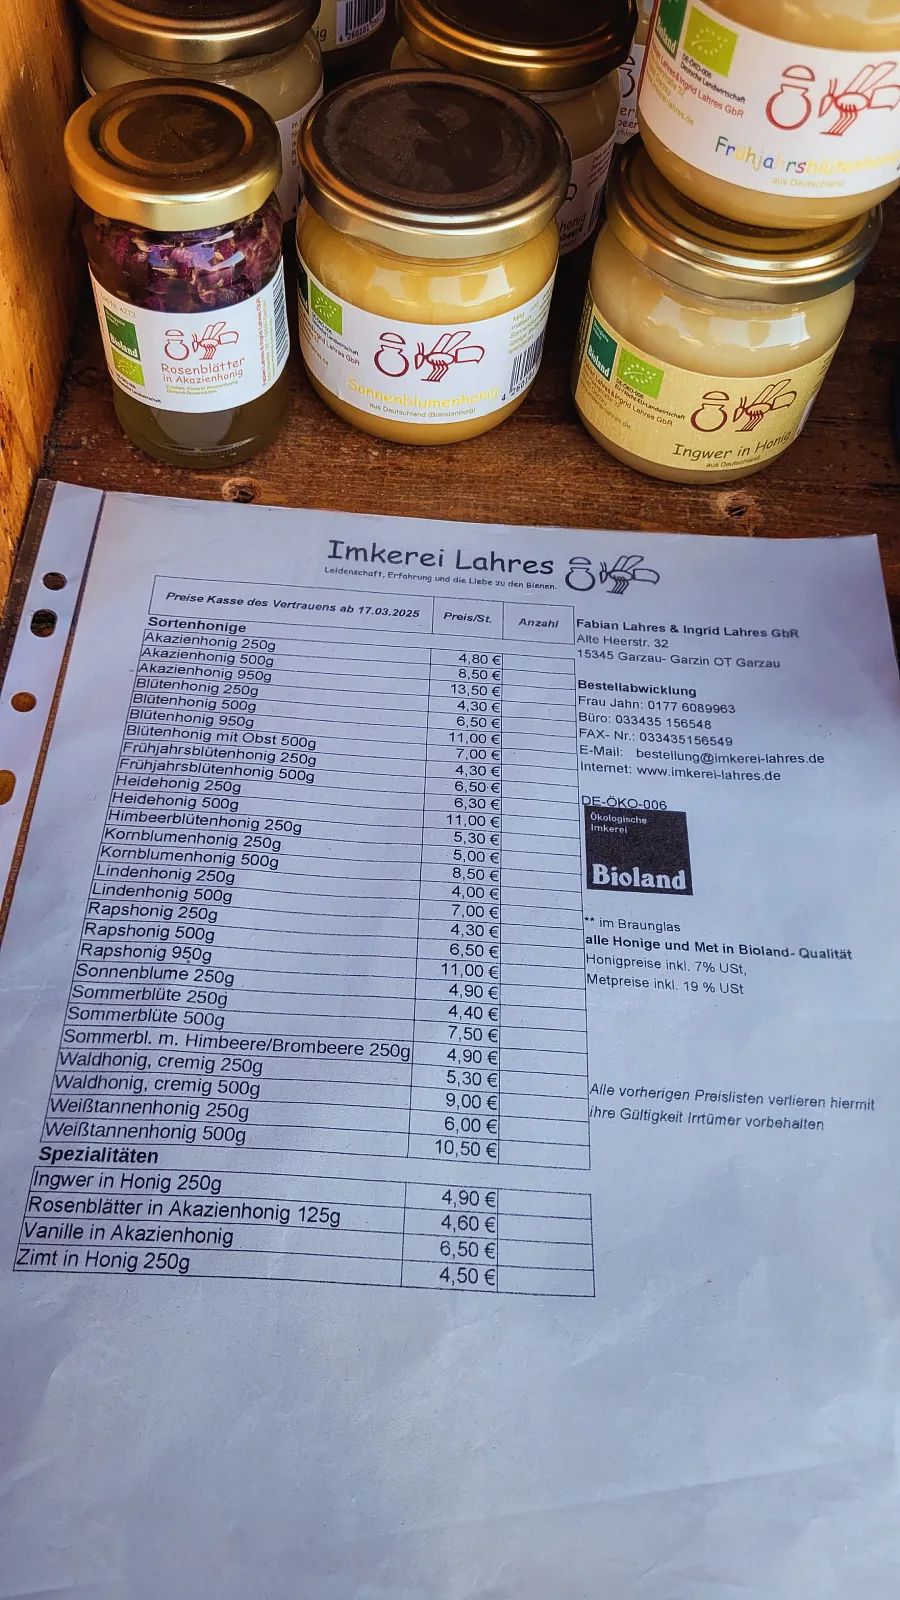 Bioland
DE-ÖKO-006
Deutsche Landwirtschaft
Ingrid Lahres GbR
Frühjahrsblütenhonig
aus Deutschland
Bioland
Rosenblätter
in Akazienhonig
Sonnenblumenhonig
aus Deutschland (Brandenburg)
Bioland
Ingrid Lahres GbR
Ingwer in Honig
aus Deutschland
Imkerei Lahres
Leidenschaft, Erfahrung und die Liebe zu den Bienen.
Preise Kasse des Vertrauens ab 17.03.2025 Preis/St. Anzahl
Sortenhonige
Akazienhonig 250g 4,80 €
Akazienhonig 500g 8,50 €
Akazienhonig 950g 13,50 €
Blütenhonig 250g 4,30 €
Blütenhonig 500g 6,50 €
Blütenhonig 950g 11,00 €
Blütenhonig mit Obst 500g 7,00 €
Frühjahrsblütenhonig 250g 4,30 €
Frühjahrsblütenhonig 500g 6,50 €
Heidehonig 250g 6,30 €
Heidehonig 500g 11,00 €
Himbeerblütenhonig 250g 5,30 €
Kornblumenhonig 250g 5,00 €
Kornblumenhonig 500g 8,50 €
Lindenhonig 250g 4,00 €
Lindenhonig 500g 7,00 €
Rapshonig 250g 4,30 €
Rapshonig 500g 6,50 €
Rapshonig 950g 11,00 €
Sonnenblume 250g 4,90 €
Sommerblüte 250g 4,40 €
Sommerblüte 500g 7,50 €
Sommerbl. m. Himbeere/Brombeere 250g 4,90 €
Waldhonig, cremig 250g 5,30 €
Waldhonig, cremig 500g 9,00 €
Weißtannenhonig 250g 6,00 €
Weißtannenhonig 500g 10,50 €
Spezialitäten
Ingwer in Honig 250g 4,90 €
Rosenblätter in Akazienhonig 125g 4,60 €
Vanille in Akazienhonig 6,50 €
Zimt in Honig 250g 4,50 €
Fabian Lahres & Ingrid Lahres GbR
Alte Heerstr. 32
15345 Garzau- Garzin OT Garzau
Bestellabwicklung
Frau Jahn: 0177 6089963
Büro: 033435 156548
FAX- Nr.: 033435156549
E-Mail: bestellung@imkerei-lahres.de
Internet: www.imkerei-lahres.de
DE-ÖKO-006
Ökologische
Imkerei
Bioland
** im Braunglas
alle Honige und Met in Bioland- Qualität
Honigpreise inkl. 7% USt,
Metpreise inkl. 19 % USt
Alle vorherigen Preislisten verlieren hiermit
ihre Gültigkeit Irrtümer vorbehalten